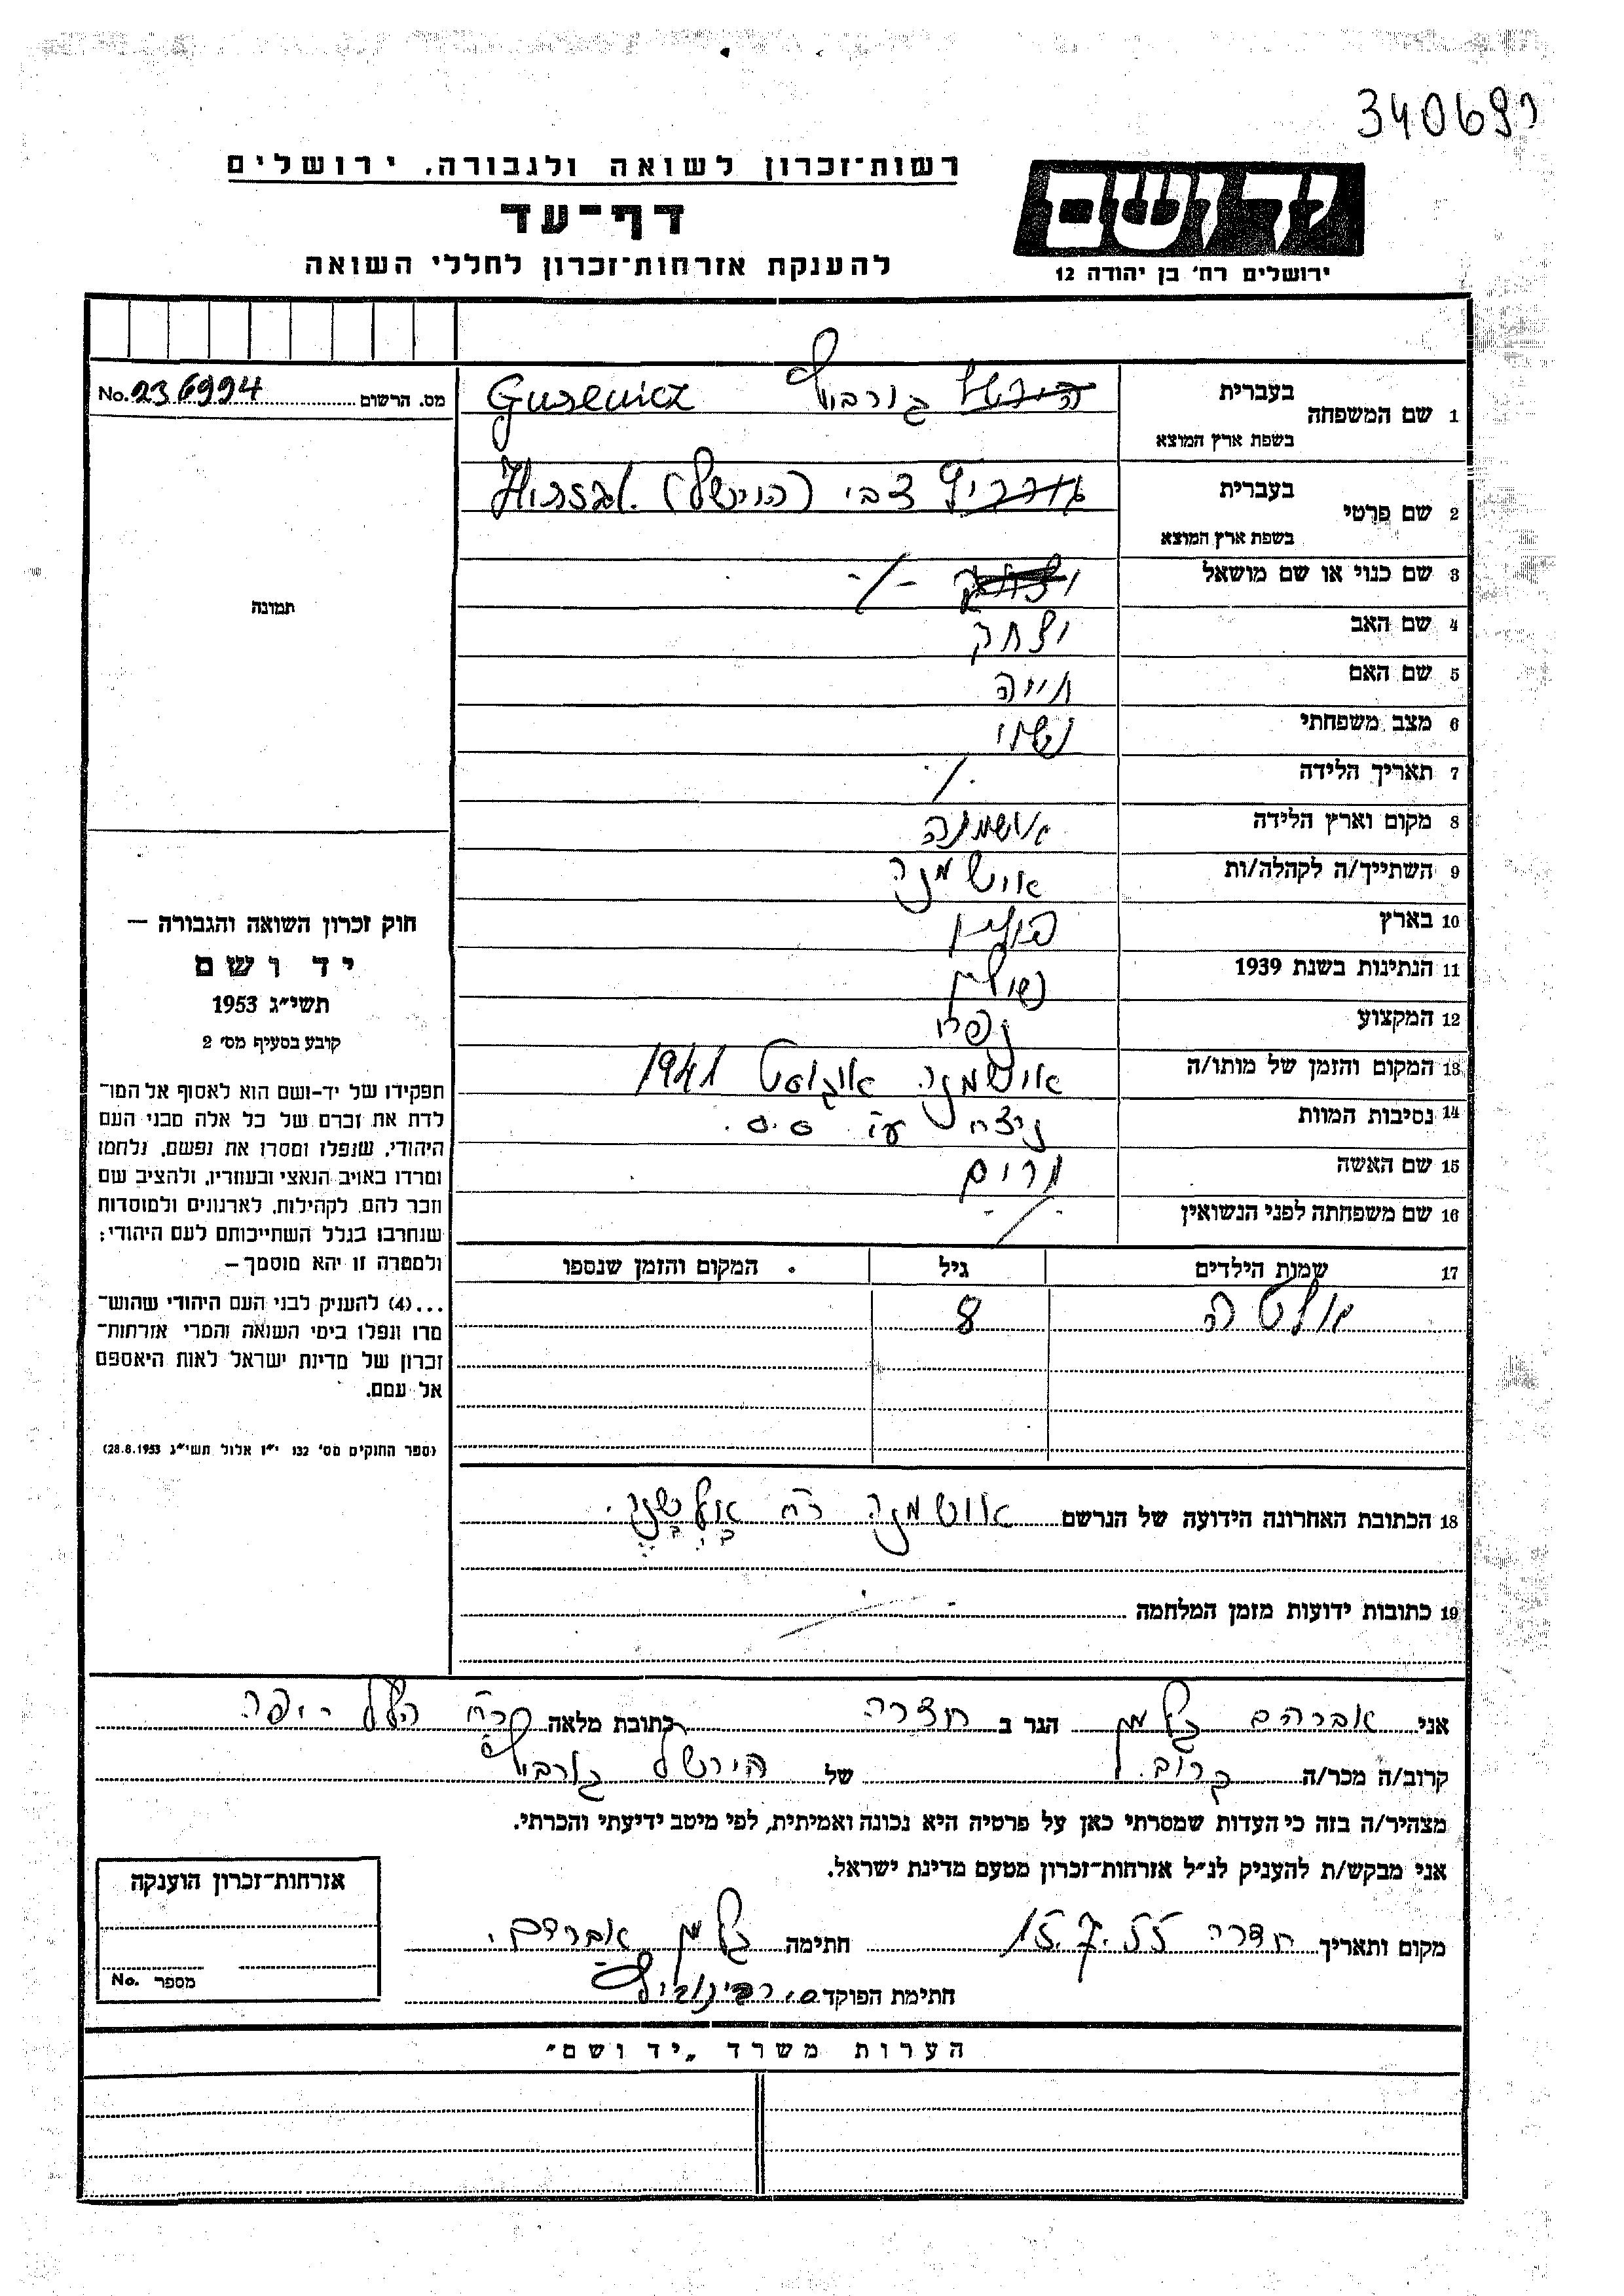 340699
רשות־זכרון לשואה ולגבורה, ירושלים
דף־עד
להענקת אזרחות־זכרון לחללי השואה
יד ושם
ירושלים רח' בן יהודה 12
מס. הרשום No. 236994
תמונה
חוק זכרון השואה והגבורה —
יד ושם
תשי״ג 1953
קובע בסעיף מס' 2
תפקידו של יד-ושם הוא לאסוף אל המו־
לדת את זכרם של כל אלה מבני העם
היהודי, שנפלו ומסרו את נפשם, נלחמו
ומרדו באויב הנאצי ובעוזריו, ולהציב שם
וזכר להם, לקהילות, לארגונים ולמוסדות
שנחרבו בגלל השתייכותם לעם היהודי;
ולמטרה זו יהא מוסמך —
...(4) להעניק לבני העם היהודי שהוש־
מדו ונפלו בימי השואה והמרי אזרחות־
זכרון של מדינת ישראל לאות היאספם
אל עמם.
(ספר החוקים מס' 132 י״ז אלול תשי״ג 28.8.1953)
1 שם המשפחה בעברית הירשל גורביץ Gurewicz
בשפת ארץ המוצא
2 שם פרטי בעברית גורביץ צבי (הירשל) Hirszl.
בשפת ארץ המוצא
3 שם כנוי או שם מושאל יצחק -/-
4 שם האב יצחק
5 שם האם חיה
6 מצב משפחתי נשוי
7 תאריך הלידה ./.
8 מקום וארץ הלידה אושמנה
9 השתייך/ה לקהלה/ות אושמנה
10 בארץ פולין
11 הנתינות בשנת 1939
12 המקצוע נפח
13 המקום והזמן של מותו/ה אושמנה אוגוסט 1941
14 נסיבות המוות ניצח ע״י ס.ס.
15 שם האשה מרים
16 שם משפחתה לפני הנשואין -/-
17 שמות הילדים גיל המקום והזמן שנספו
אלטה 8
18 הכתובת האחרונה הידועה של הנרשם אושמנה רח'
19 כתובות ידועות מזמן המלחמה
אני אברהם גלמן הגר ב חדרה כתובת מלאה רח' הלל יפה
קרוב/ה מכר/ה קרוב של הירשל גורביץ
מצהיר/ה בזה כי העדות שמסרתי כאן על פרטיה היא נכונה ואמיתית, לפי מיטב ידיעתי והכרתי.
אני מבקש/ת להעניק לנ״ל אזרחות־זכרון מטעם מדינת ישראל.
מקום ותאריך חדרה 15.7.55 חתימה גלמן אברהם.
חתימת הפוקד ס. רבינוביץ
אזרחות־זכרון הוענקה
מספר No.
הערות משרד „יד ושם״